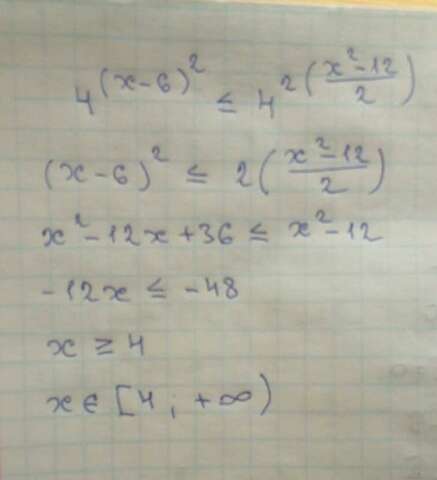 4^(x-6)² ≤ 4^2((x²-12)/2)
(x-6)² ≤ 2((x²-12)/2)
x²-12x+36 ≤ x²-12
-12x ≤ -48
x ≥ 4
x ∈ [4; +∞)